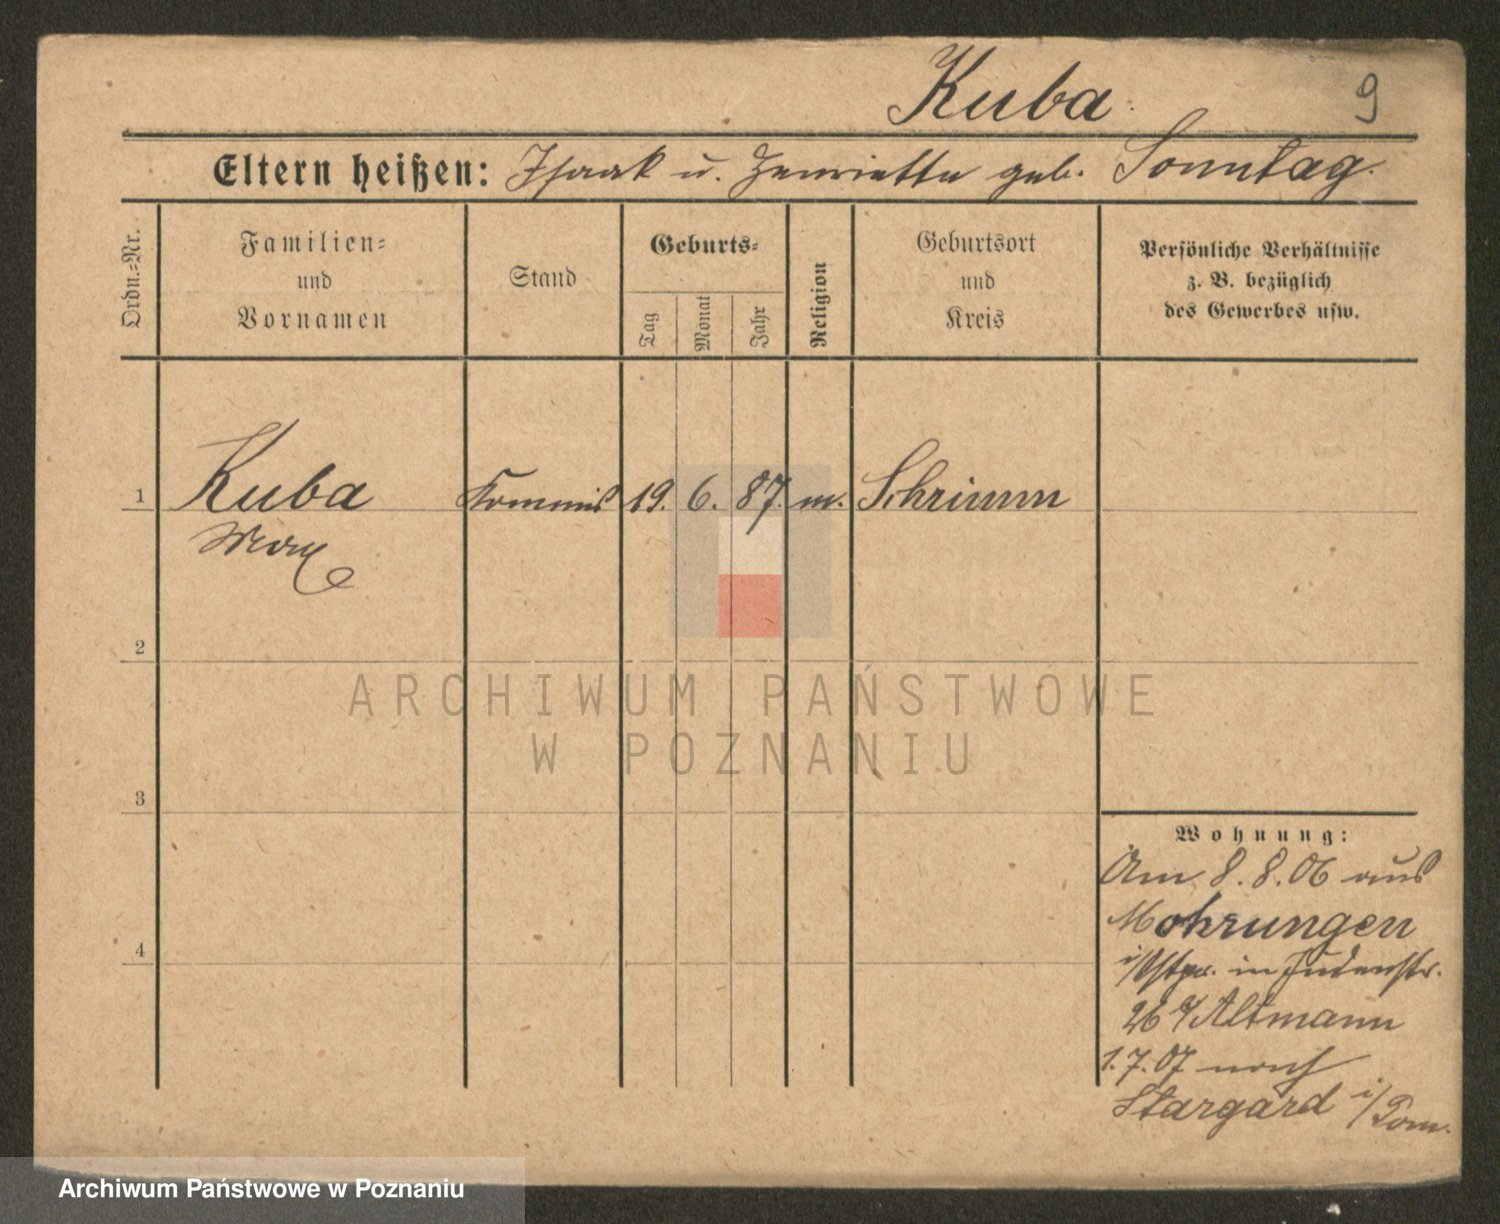 Kuba.
9
Eltern heißen: Isaak u. Henriette geb. Sonntag.
Ordn.-Nr.
Familien-
und
Vornamen
Stand
Geburts-
Tag
Monat
Jahr
Religion
Geburtsort
und
Kreis
Persönliche Verhältnisse
z. B. bezüglich
des Gewerbes usw.
1 Kuba Kommis 19. 6. 87. m. Schrimm
Max
2
ARCHIWUM PAŃSTWOWE
W POZNANIU
3
Wohnung:
Am 8.8.06 aus
Mohrungen
i/Ostpr. in Judenstr.
4
26 b/ Altmann
1.7.07 nach
Stargard i/Pom.
Archiwum Państwowe w Poznaniu